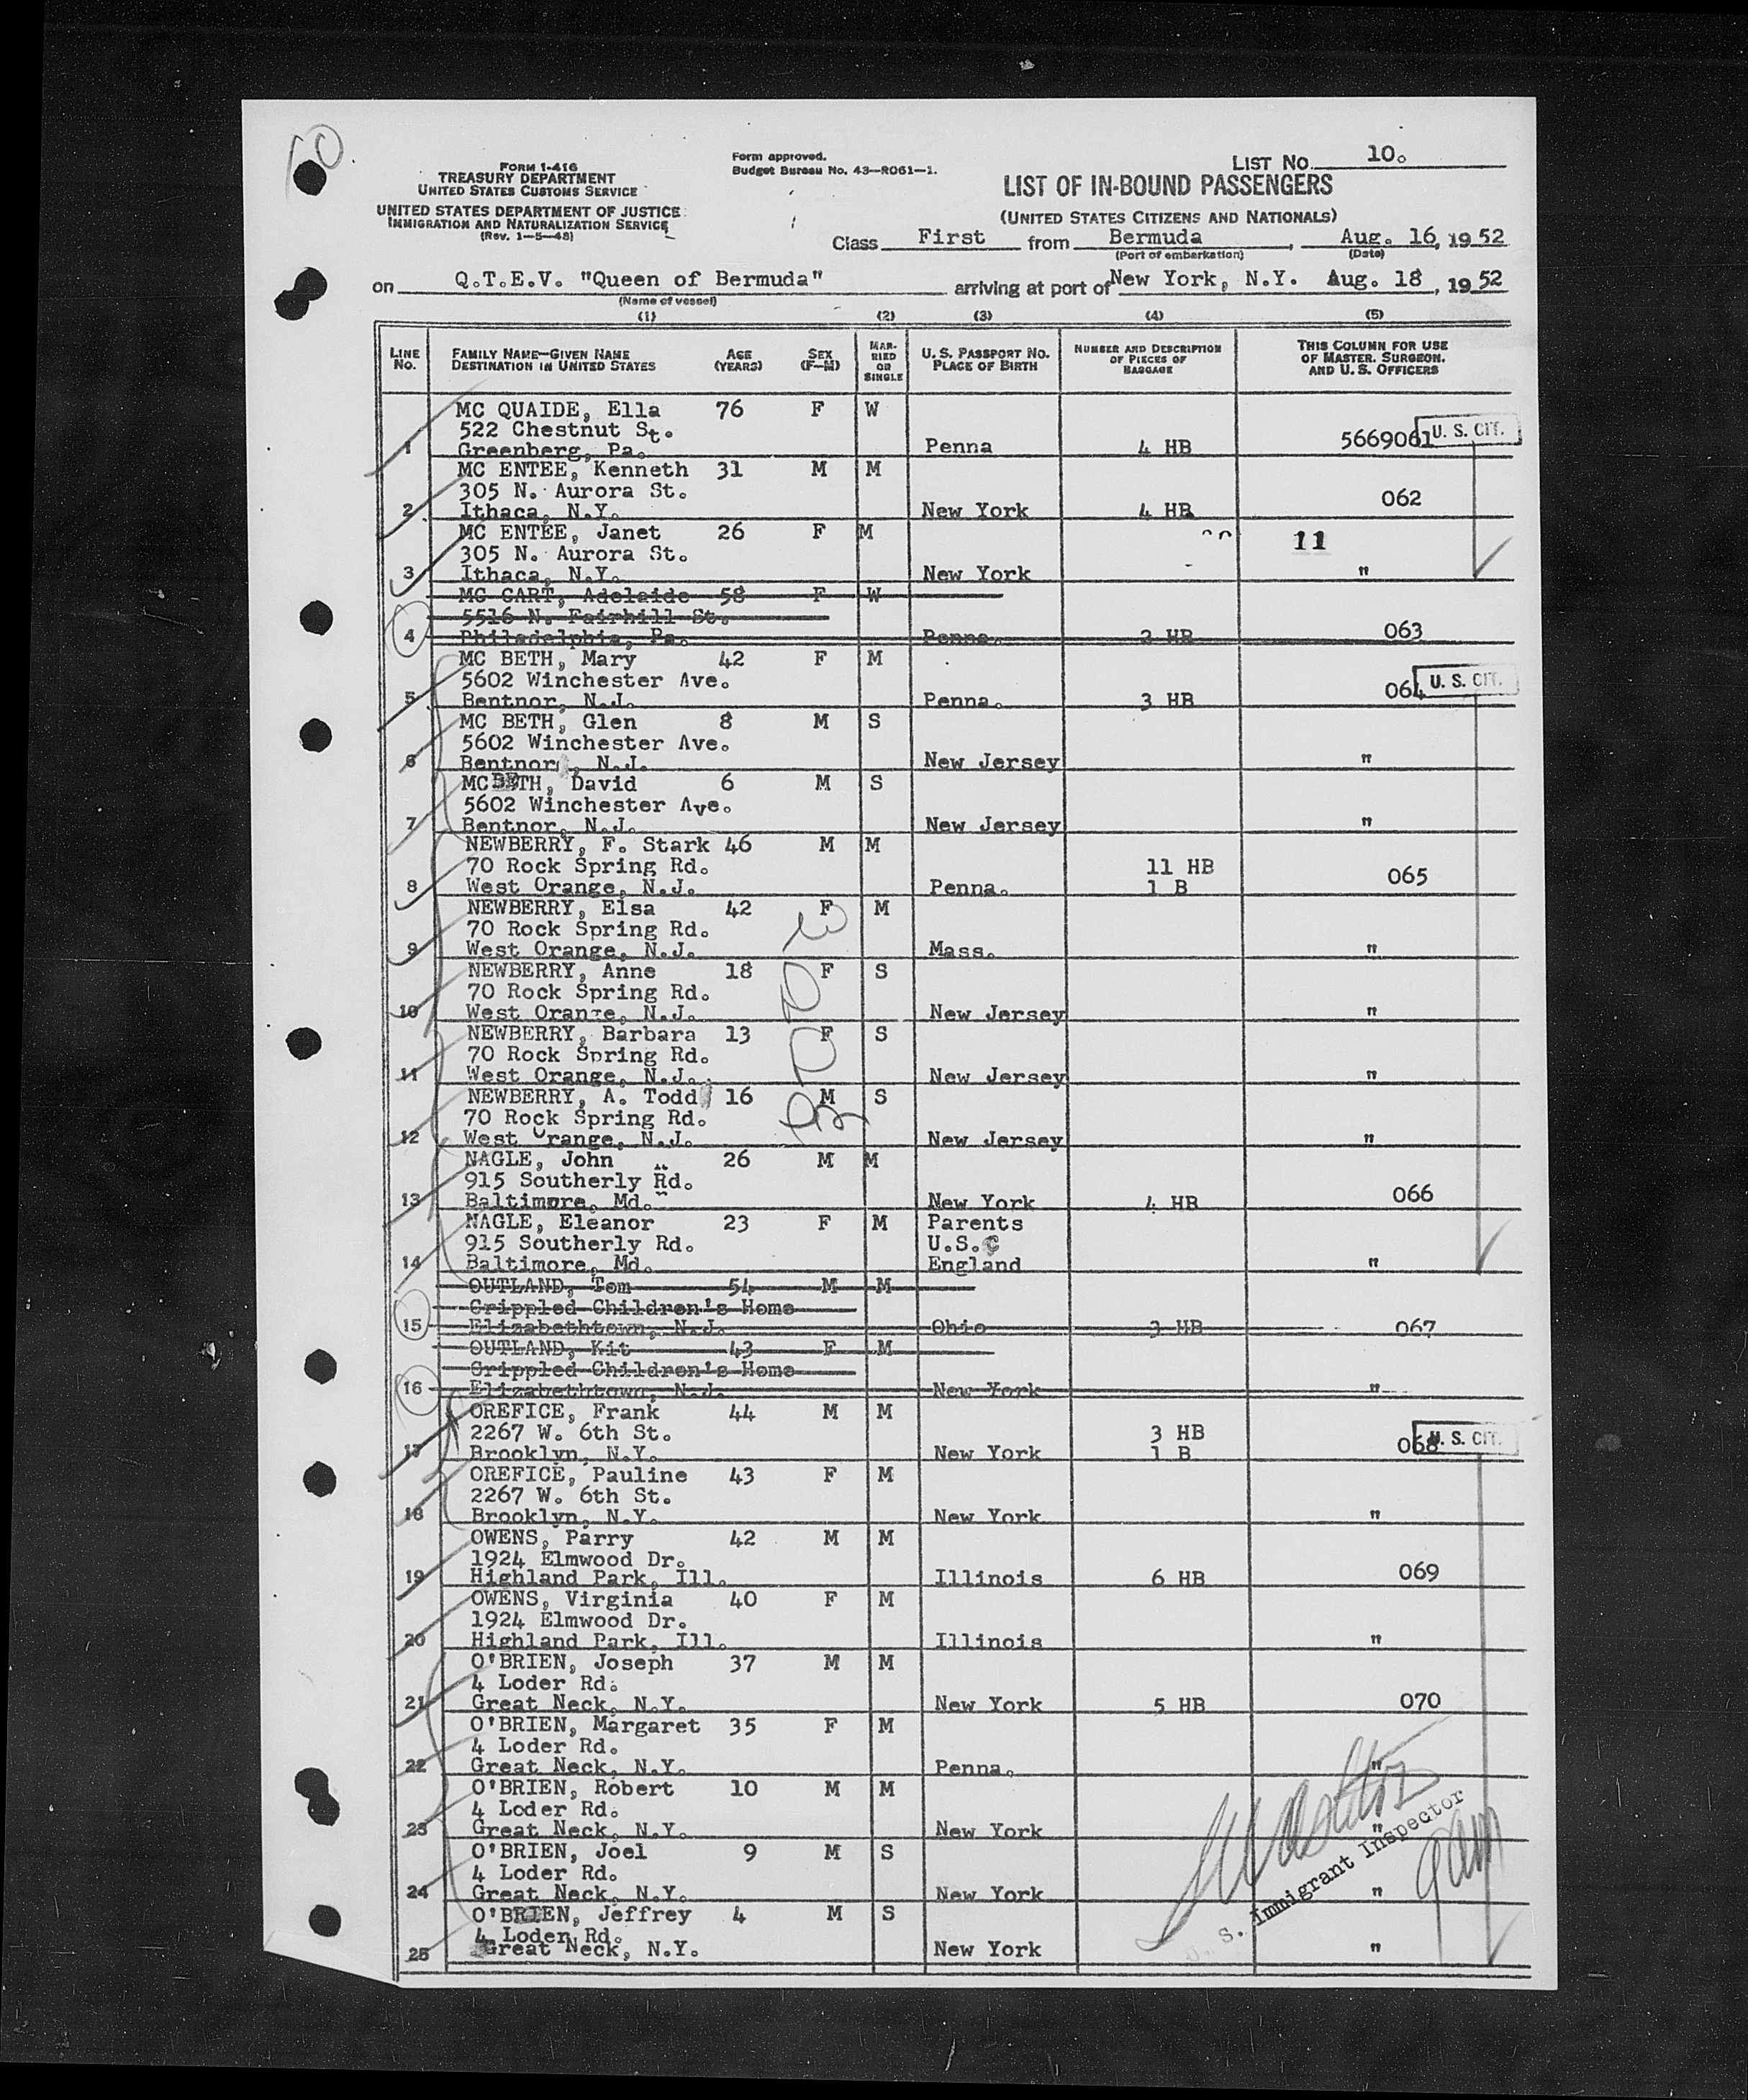 50
FORM I-416
TREASURY DEPARTMENT
UNITED STATES CUSTOMS SERVICE
UNITED STATES DEPARTMENT OF JUSTICE
IMMIGRATION AND NATURALIZATION SERVICE
(Rev. 1-5-48)
Form approved.
Budget Bureau No. 43-R061-1.
LIST NO. 10.
LIST OF IN-BOUND PASSENGERS
(UNITED STATES CITIZENS AND NATIONALS)
Class First from Bermuda, Aug. 16, 1952
(Port of embarkation) (Date)
on Q.T.E.V. "Queen of Bermuda" arriving at port of New York, N.Y. Aug. 18, 1952
(Name of vessel)
(1) (2) (3) (4) (5)
LINE NO. FAMILY NAME—GIVEN NAME DESTINATION IN UNITED STATES AGE (YEARS) SEX (F—M) MARRIED OR SINGLE U. S. PASSPORT NO. PLACE OF BIRTH NUMBER AND DESCRIPTION OF PIECES OF BAGGAGE THIS COLUMN FOR USE OF MASTER, SURGEON, AND U. S. OFFICERS
MC QUAIDE, Ella 76 F W
522 Chestnut St. U. S. CIT.
1 Greenberg, Pa. Penna 4 HB 5669061
MC ENTEE, Kenneth 31 M M
305 N. Aurora St. 062
2 Ithaca, N.Y. New York 4 HB
MC ENTEE, Janet 26 F M 11
305 N. Aurora St.
3 Ithaca, N.Y. New York "
MC CART, Adelaide 58 F W
5516 N. Fairhill St.
4 Philadelphia, Pa. Penna. 3 HB 063
MC BETH, Mary 42 F M
5602 Winchester Ave. U. S. CIT.
5 Bentnor, N.J. Penna. 3 HB 064
MC BETH, Glen 8 M S
5602 Winchester Ave.
6 Bentnor, N.J. New Jersey "
MC BETH, David 6 M S
5602 Winchester Ave.
7 Bentnor, N.J. New Jersey "
NEWBERRY, F. Stark 46 M M
70 Rock Spring Rd. 11 HB 065
8 West Orange, N.J. Penna. 1 B
NEWBERRY, Elsa 42 F M
70 Rock Spring Rd.
9 West Orange, N.J. Mass. "
NEWBERRY, Anne 18 F S
70 Rock Spring Rd.
10 West Orange, N.J. New Jersey "
NEWBERRY, Barbara 13 F S
70 Rock Spring Rd.
11 West Orange, N.J. New Jersey "
NEWBERRY, A. Todd 16 M S
70 Rock Spring Rd.
12 West Orange, N.J. New Jersey "
NAGLE, John 26 M M
915 Southerly Rd.
13 Baltimore, Md. New York 4 HB 066
NAGLE, Eleanor 23 F M Parents
915 Southerly Rd. U.S.C
14 Baltimore, Md. England "
OUTLAND, Tom 54 M M
Crippled Children's Home
15 Elizabethtown, N.J. Ohio 3 HB 067
OUTLAND, Kit 43 F M
Crippled Children's Home
16 Elizabethtown, N.J. New York "
OREFICE, Frank 44 M M
2267 W. 6th St. 3 HB U. S. CIT.
17 Brooklyn, N.Y. New York 1 B 068
OREFICE, Pauline 43 F M
2267 W. 6th St.
18 Brooklyn, N.Y. New York "
OWENS, Parry 42 M M
1924 Elmwood Dr.
19 Highland Park, Ill. Illinois 6 HB 069
OWENS, Virginia 40 F M
1924 Elmwood Dr.
20 Highland Park, Ill. Illinois "
O'BRIEN, Joseph 37 M M
4 Loder Rd.
21 Great Neck, N.Y. New York 5 HB 070
O'BRIEN, Margaret 35 F M
4 Loder Rd.
22 Great Neck, N.Y. Penna. "
O'BRIEN, Robert 10 M M
4 Loder Rd.
23 Great Neck, N.Y. New York "
O'BRIEN, Joel 9 M S
4 Loder Rd.
24 Great Neck, N.Y. New York "
O'BRIEN, Jeffrey 4 M S
4 Loder Rd.
25 Great Neck, N.Y. New York "
U. S. Immigrant Inspector